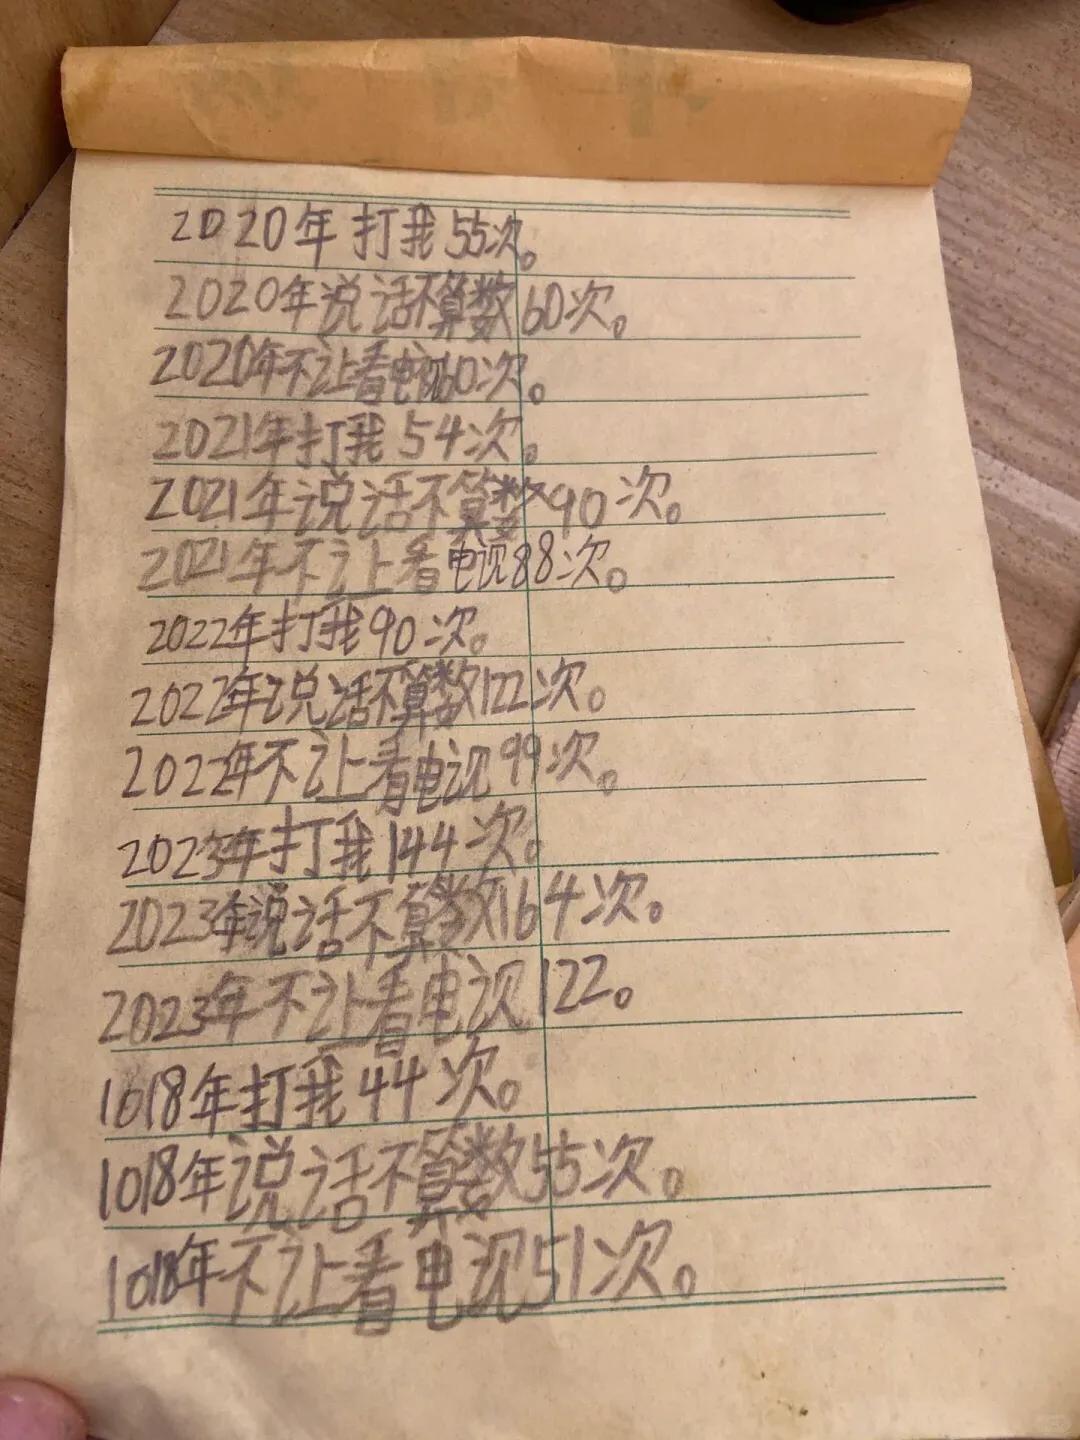 2020年打我55次。
2020年说话不算数60次。
2020年不让看电视60次。
2021年打我54次。
2021年说话不算数90次。
2021年不让看电视88次。
2022年打我90次。
2022年说话不算数122次。
2022年不让看电视99次。
2023年打我144次。
2023年说话不算数164次。
2023年不让看电视122。
1018年打我44次。
1018年说话不算数55次。
1018年不让看电视51次。